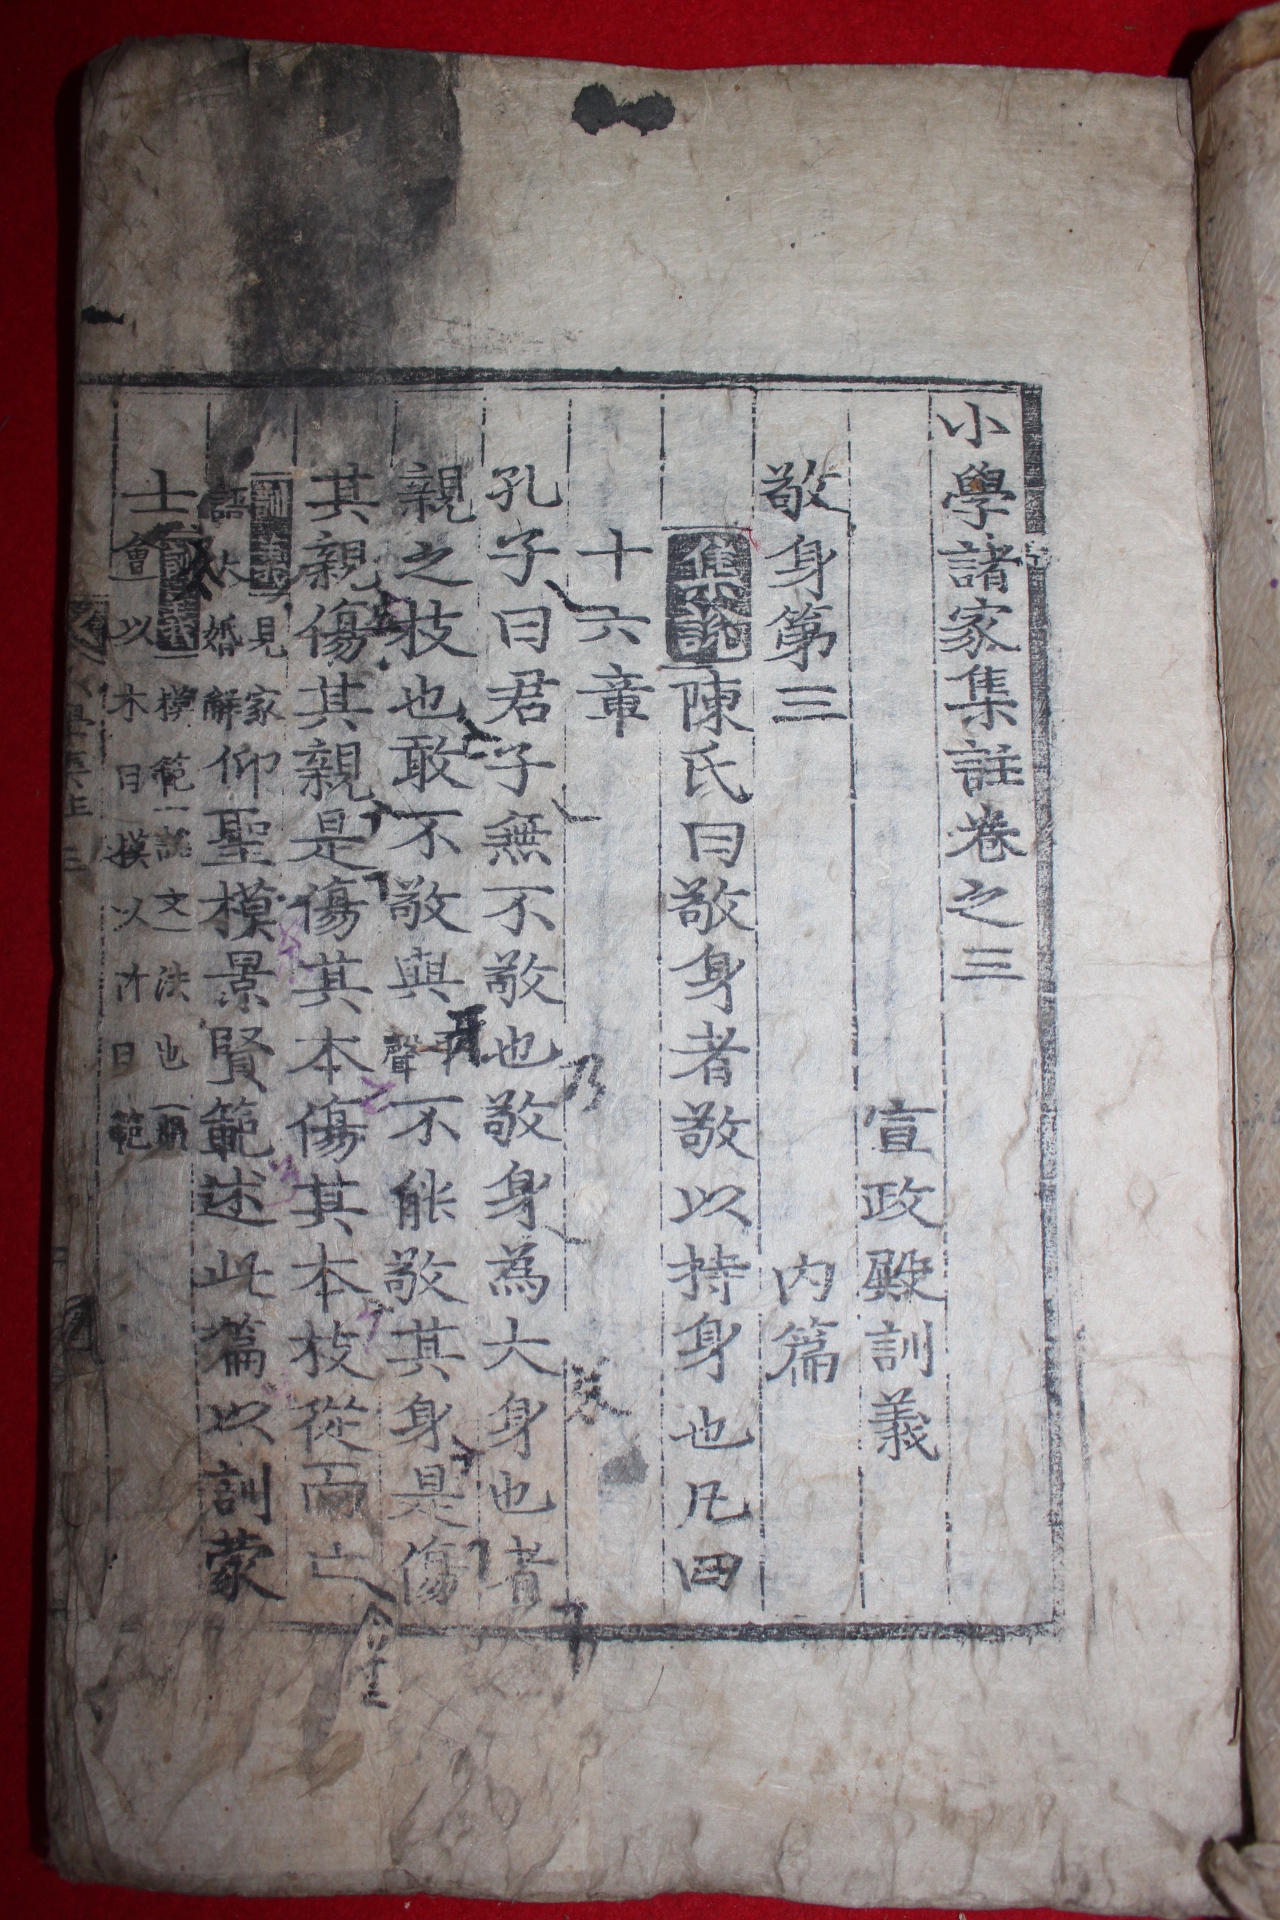 小學諸家集註卷之三
宣政殿訓義
敬身第三 內篇
集說 陳氏曰敬身者敬以持身也凡四
十六章
孔子曰君子無不敬也敬身爲大身也者
親之枝也敢不敬與平聲不能敬其身是傷
其親傷其親是傷其本傷其本枝從而亡
訓義見家
語大婚解仰聖模景賢範述此篇以訓蒙
士訓義模範說文法也
會以木曰模以竹曰範